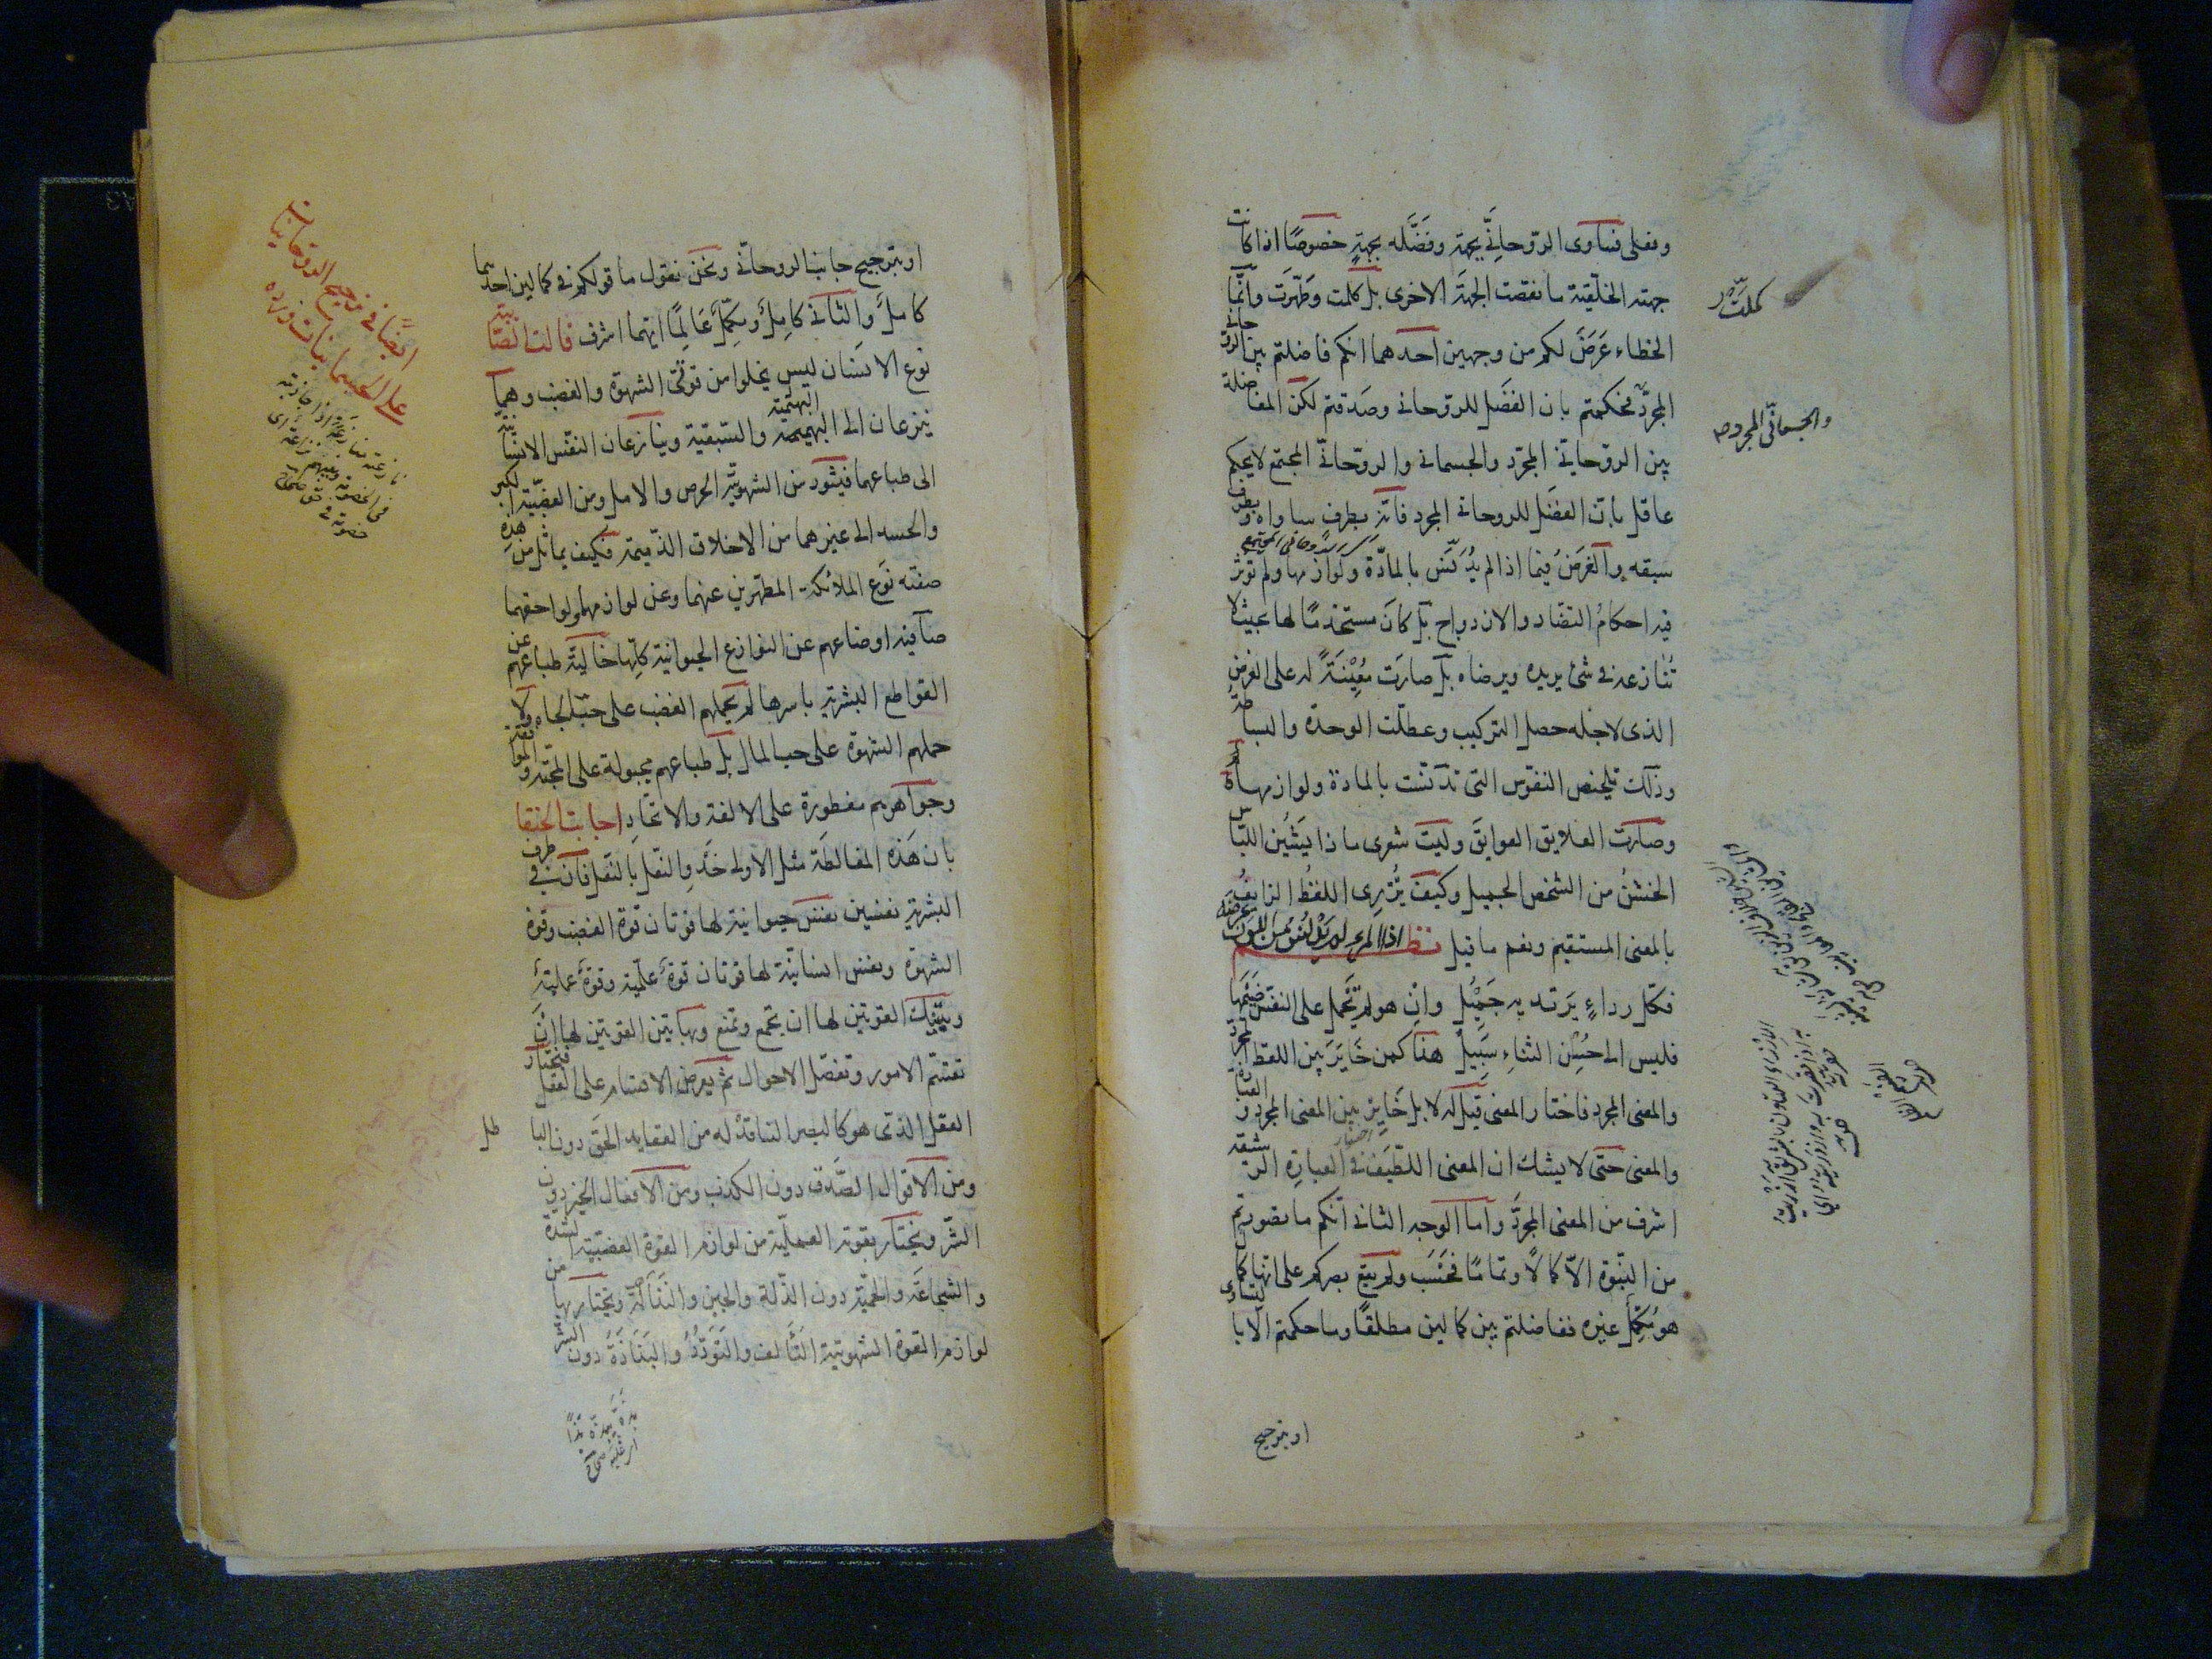 وفعلى فساوى الروحانَّي بجهة وفَضَّله بجهةٍ خصوصًا اذا كانت
جهته الخلقية ما نقصت الجهتَه الاخرى بل كملت وطهرَت وانّما
الخطاء عَرَضَ لكم من وجهين احدهما انكم فاضلتم بين الروحانى
المجرّد فحكمتم بان الفَضَل للروحانى وصَدقتم لكن المفاضلة
بين الروحانّي المجرّد والجسمانى والروحانّي المجتمع لا يحكم
عاقل بأن الفضَل للروحانى المجرد فانّه بطرف ساواه وبطرف
سبقه والفرَض فيما اذا لم يُدَنَّس بالمادّة ولوازمها ولم تؤثر
فيه احكامُ التضّاد والازدواج بل كانَ مستخدمًا لها بحيث لا
تُنازعه فى شئ يريده ويرضاه بل صارَت مُعِيْنَةً له على الغرض
الذى لاجله حصل التركيب وعطلّت الوحدّة والبساطةُ
وذلك تلخيص النفوس التى تدنّست بالمادة ولوازمها
وصارت العلايق العوايقَ وليت شعرى ماذا يَشَيْن اللباس
الخشنُ من الشخص الجميل وكيفَ يُزرِى اللفظُ الرايفُ
بالمعنى المستقيم ونعم ما قيل نظم اذا المرء لم يدنس من اللؤم عرضه
فكلّ رداءٍ يَرتديه جَمِيْلُ وان هو لم يَحمل على النفس ضَيْمَها
فليس الى حُسْنِ الثناءِ سَبِيلُ هذا كمن خَايَرَ بين اللفظ المجرّد
والمعنى المجرد فاختار المعنى قيل له لا بل خَايِر بين المعنى المجرد والعبارة
والمعنى حتى لا يشك ان المعنى اللطيف فى العبارة الرشيقة
اشرف من المعنى المجرَّد واما الوجه الثانى انّكم ما تصورتم
من النبّوة الاّ كمالًا وتمامًا فحَسَب ولم يقع بصركم على انها كمال
هو مُكَمِّلُ غيره ففاضلتم بين كمالين مطلقًا وما حكمتم الا بالتساوى
او بترجيح
كملت
والجسمانّى المجرد صح
او بترجيح جانب الروحانّى ونحن نقول ما قولكم فى كمالين احدهما
كاملٌ والثانى كامِلٌ ومكمّلٌ عَالِمًا ايهما اشرف قالت الصّابية
نوع الانسَان ليس يخلوا من قوتَى الشهوة والغضب وهما
ينزعان الى البهيمية والسَّبعية وينازعان النفس الانسانية
الى طباعهما فيثور من الشهوّية الحرص والامل ومن الغضبيّة الكبر
والحسد الى غيرهما من الاخلاق الذميمة فكيف يماثل من هذه
صفته نوَع الملائكة المطهّرين عنهما وعن لوازمهما ولواحقهما
صافية اوضاعهم عن النوازع الحيوانية كلّها خاليَة طباعهم عن
القواطع البشرية باسرها لم يحملهم الغضب على حبّ الجاه ولا
حملهم الشهوة على حب المال بل طباعهم مجبولة على المحبّة والموافقة
وجواهرهم مفطورة على الالفة والاتحادِ اجابت الحنفا
بان هَذه المغالطَة مثل الاولى حَذو النعّل بالنّعل فانّ فى طرف
البشرية نفسين نفس حيوانية لها قوتان قوة الغضب وقوة
الشهوة ونفس انسانّية لها قوتان قوةٌ علمّية وقوةٌ عمليةٌ
وبتينك القوتين لها ان تجمع وتمنع وبهاتين القوتين لها انْ
تقسّم الامور وتفصّل الاحوال ثم يعرض الاقسام على العقل فيختار
العقل الذى هو كالبصر النّاقد له من العقايد الحقّ دون الباطل
ومن الاقوال الصَّدق دون الكذب ومن الافعال الخير دون
الشّر ويختار بقوته العملّية من لوازم القوة الغضبّية الشدة
والشجاعَةَ والحمّية دون الذّلة والجبن والنَذَالَةَ ويختار بها من
لوازم القوة الشهوّية التَّألف والتوَدُّدُ والبَذاذَةُ دون الشره
ايضًا فى ترجيح الروحانيات
على الجسمانيات وردّه